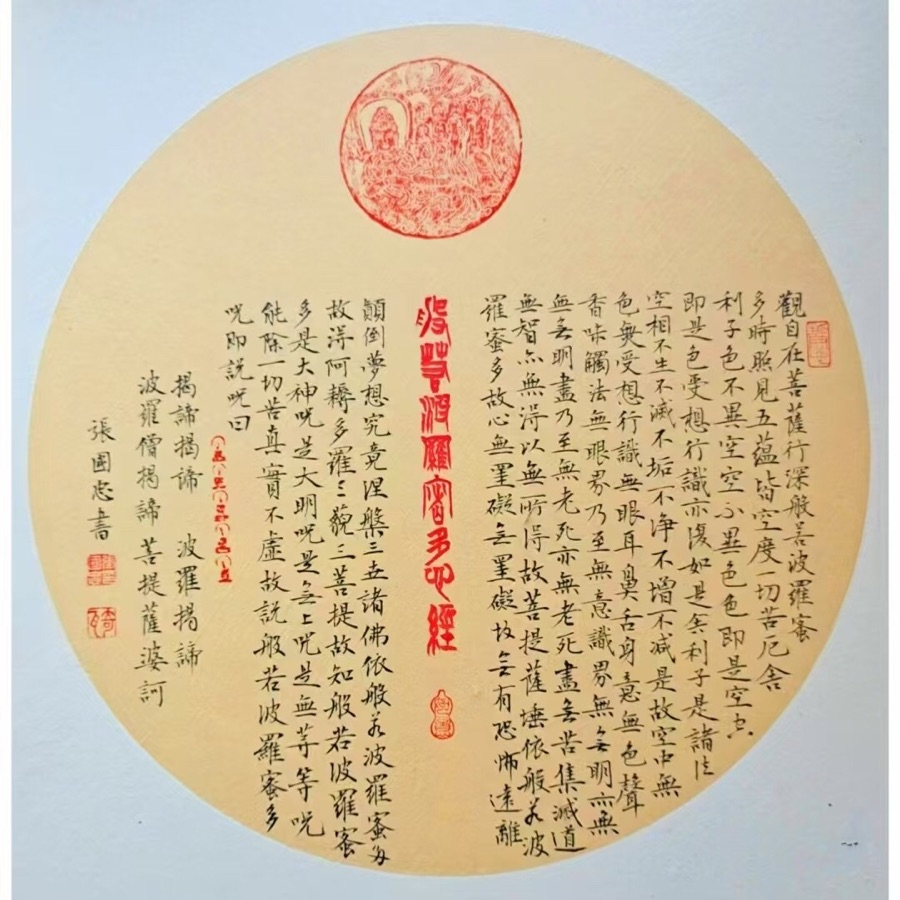 觀自在菩薩行深般若波羅蜜
多時照見五蘊皆空度一切苦厄舍
利子色不異空空不異色色即是空空
即是色受想行識亦復如是舍利子是諸法
空相不生不滅不垢不淨不增不減是故空中無
色無受想行識無眼耳鼻舌身意無色聲
香味觸法無眼界乃至無意識界無无明亦無
無无明盡乃至無老死亦無老死盡无苦集滅道
無智亦無得以無所得故菩提薩埵依般若波
羅蜜多故心無罣礙无罣礙故无有恐怖遠離
般若波羅密多心經
顛倒夢想究竟涅槃三世諸佛依般若波羅蜜多
故得阿耨多羅三藐三菩提故知般若波羅蜜
多是大神咒是大明咒是无上咒是無等等咒
能除一切苦真實不虛故説般若波羅蜜多
咒即説咒曰
揭諦揭諦 波羅揭諦
波羅僧揭諦 菩提薩婆訶
張國忠書